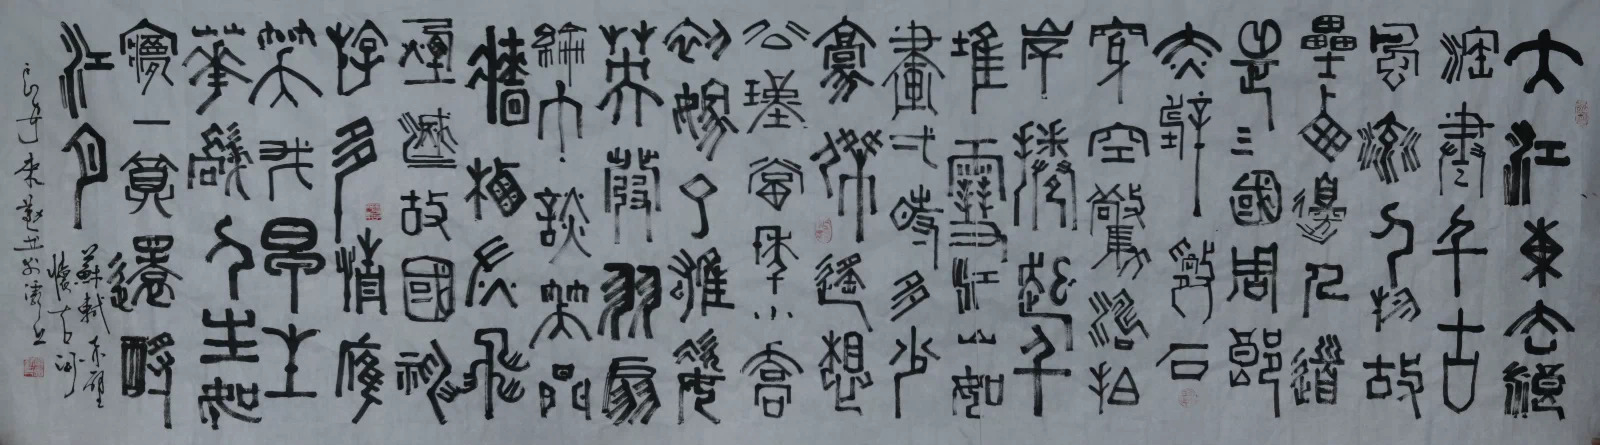 大江東去浪
淘盡千古
風流人物故
壘西邊人道
是三國周郎
赤壁亂石
穿空驚濤拍
岸捲起千
堆雪江山如
畫弌時多少
豪傑遙想
公瑾當年小喬
初嫁了雄姿
英發羽扇
綸巾談笑間
檣櫓灰飛
煙滅故國神
游多情應
笑我早生
華髮人生如
夢一尊還酹
江月
蘇軾赤壁
懷古詞